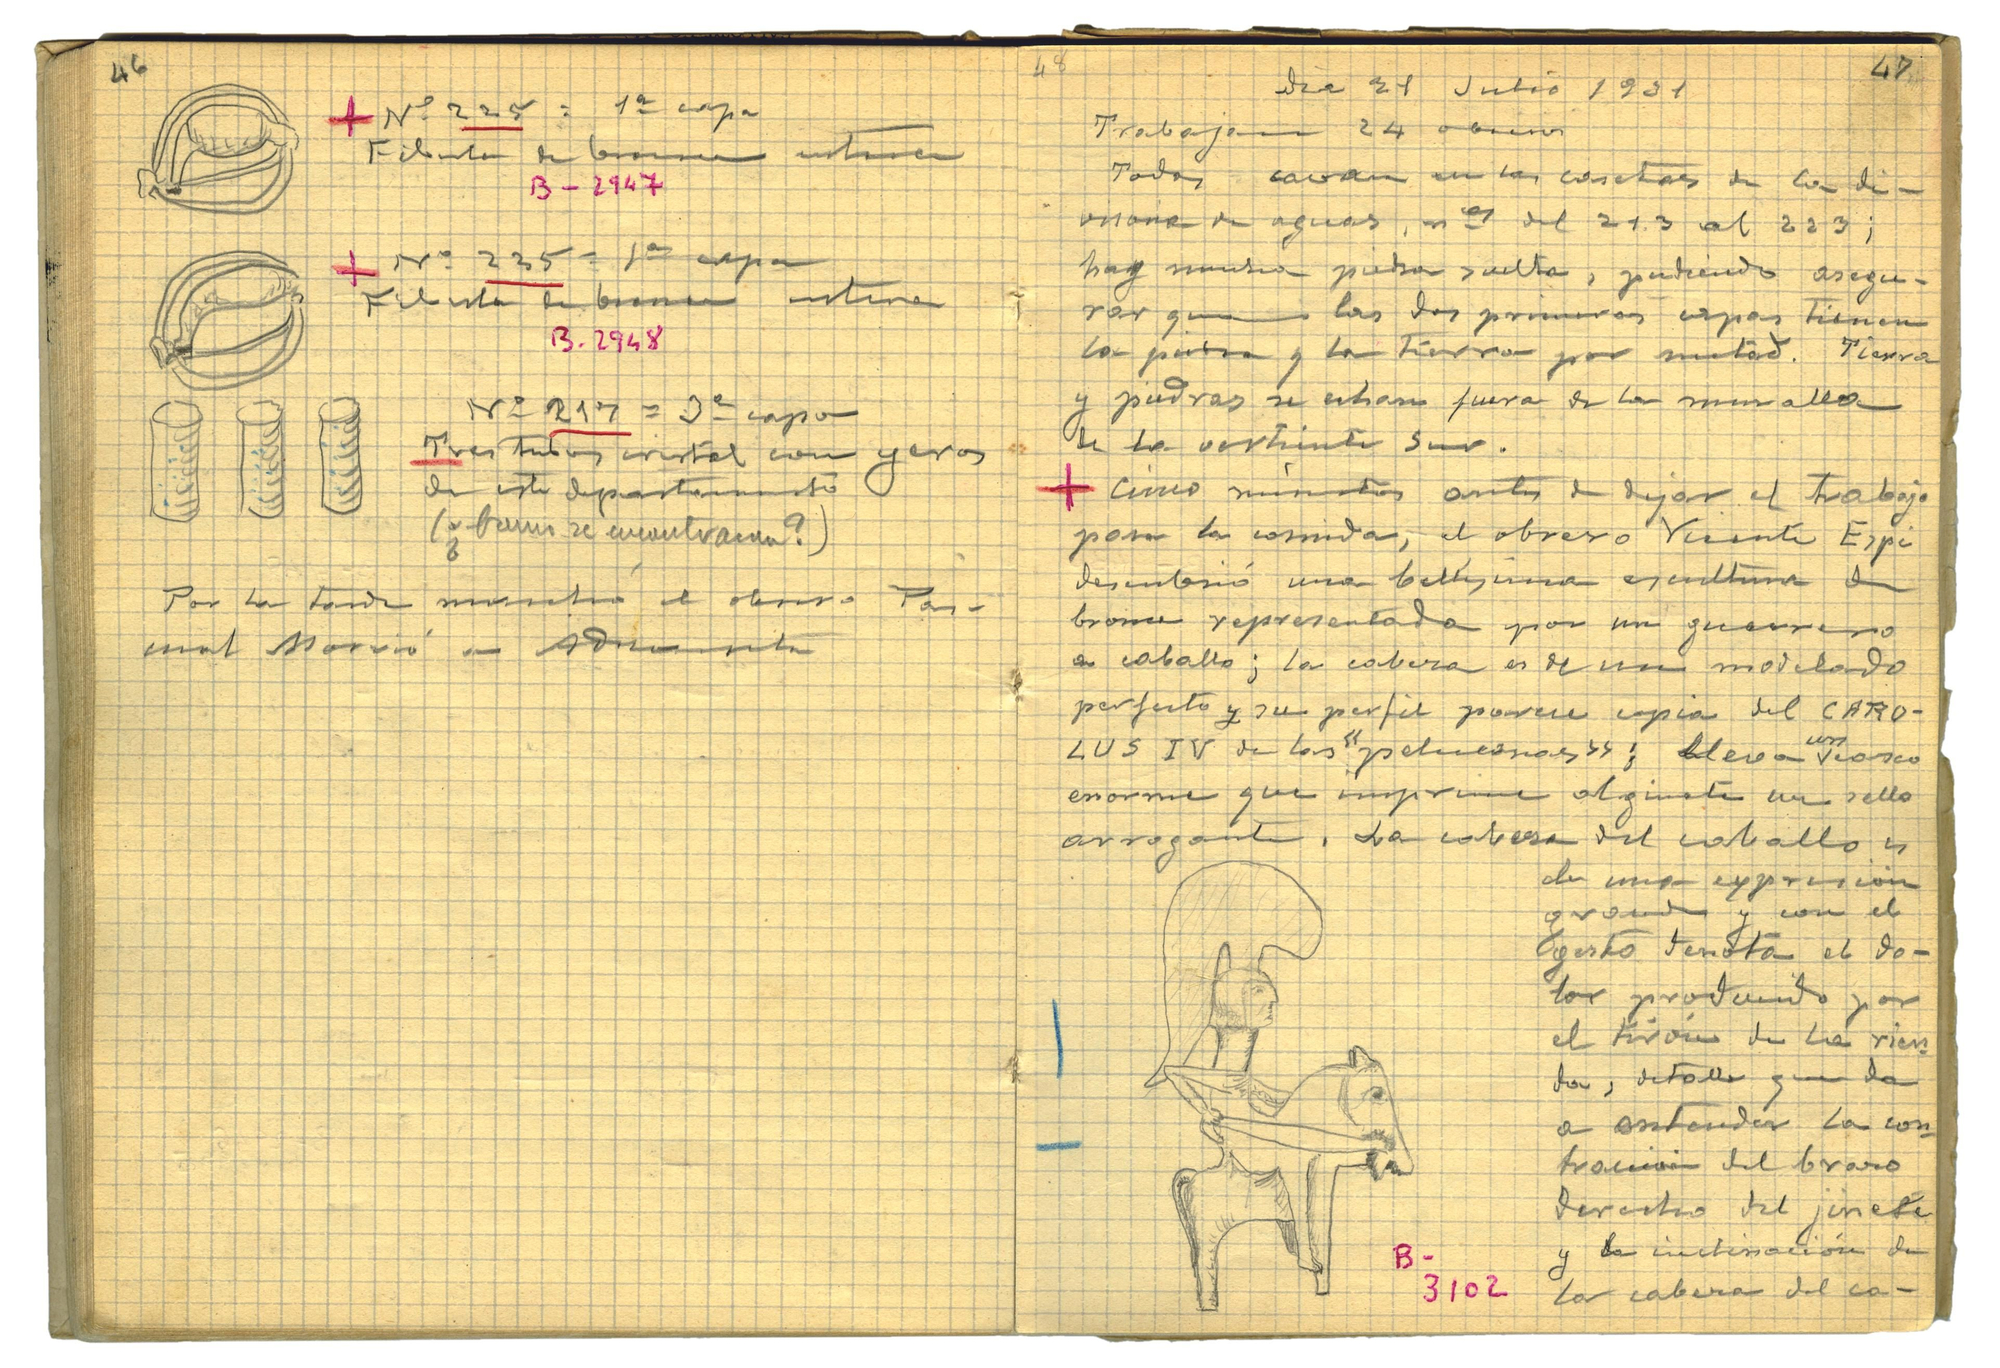 46
+ Nº 225 = 1ª capa
Fibula de bronce entera
B-2947
+ Nº 225 = 1ª capa
Fibula de bronce entera
B.2948
Nº 217 = 3ª capa
Tres tubos cristal con yeros
de este departamento
(¿ se encontraron?)
Por la tarde marchó el obrero Pas-
cual a
48
47
Dia 21 Julio 1931
Trabajan 24 obreros
Todos cavan en las casetas de la di-
visoria de aguas, nos del 213 al 223;
hay mucha piedra suelta, pudiendo asegu-
rar que las dos primeras capas tienen
la piedra y la tierra por mitad. Tierra
y piedras se echan fuera de la muralla
de la vertiente Sur.
+ Cinco minutos antes de dejar el trabajo
para la comida, el obrero Vicente Espi
descubrió una bellisima escultura de
bronce representada por un guerrero
a caballo; la cabeza es de un modelado
perfecto y su perfil parece copia del CARO-
LUS IV de las "peluconas"; lleva un casco
enorme que imprime al ginete un sello
arrogante. La cabeza del caballo es
de una expresión
grande y con el
gesto denota el do-
lor producido por
el tirón de la rien-
da, detalle que da
a entender la con-
tracción del brazo
derecho del jinete
y la inclinación de
la cabeza del ca-
B-
3102